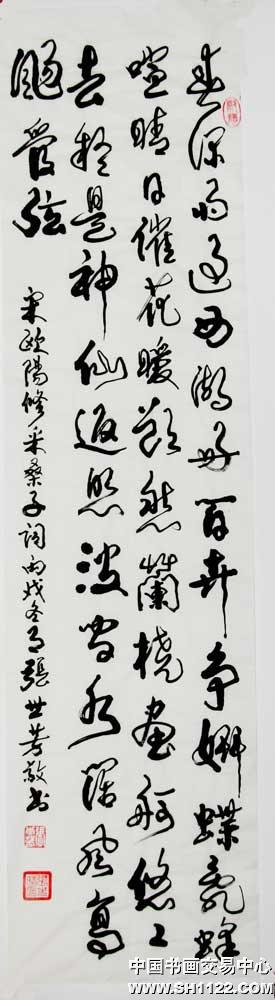 春深雨過西湖好百卉争妍蝶亂蜂
喧晴日催花暖欲然蘭橈畫舸悠々
去疑是神仙返照波間水闊風高
颺管弦
宋歐陽修采桑子詞丙戌冬月張世芳敬书
中国书画交易中心
www.SH1122.com